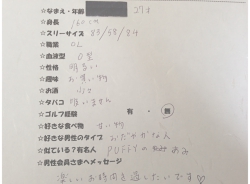 ☆なまえ・年齢 27才
☆身長 160cm
☆スリーサイズ 83/58/84
☆職業 OL
☆血液型 O型
☆性格 明るい
☆趣味 お買い物
☆お酒
☆タバコ 吸いません
☆ゴルフ経験 有・無
☆好きな食べ物 甘い物
☆好きな男性のタイプ おだやかな人
☆似ている?有名人 PUFFYの あみ
☆男性会員さまへメッセージ
楽しいお時間を過したいです♡